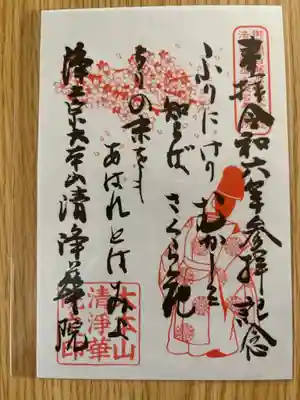 奉拝令和六年参拝記念
ふりにけりむかしを
知らばさくら花
ちりの末をも
あはれとはみよ
浄土宗大本山清浄華院
大本山
清淨華
院印